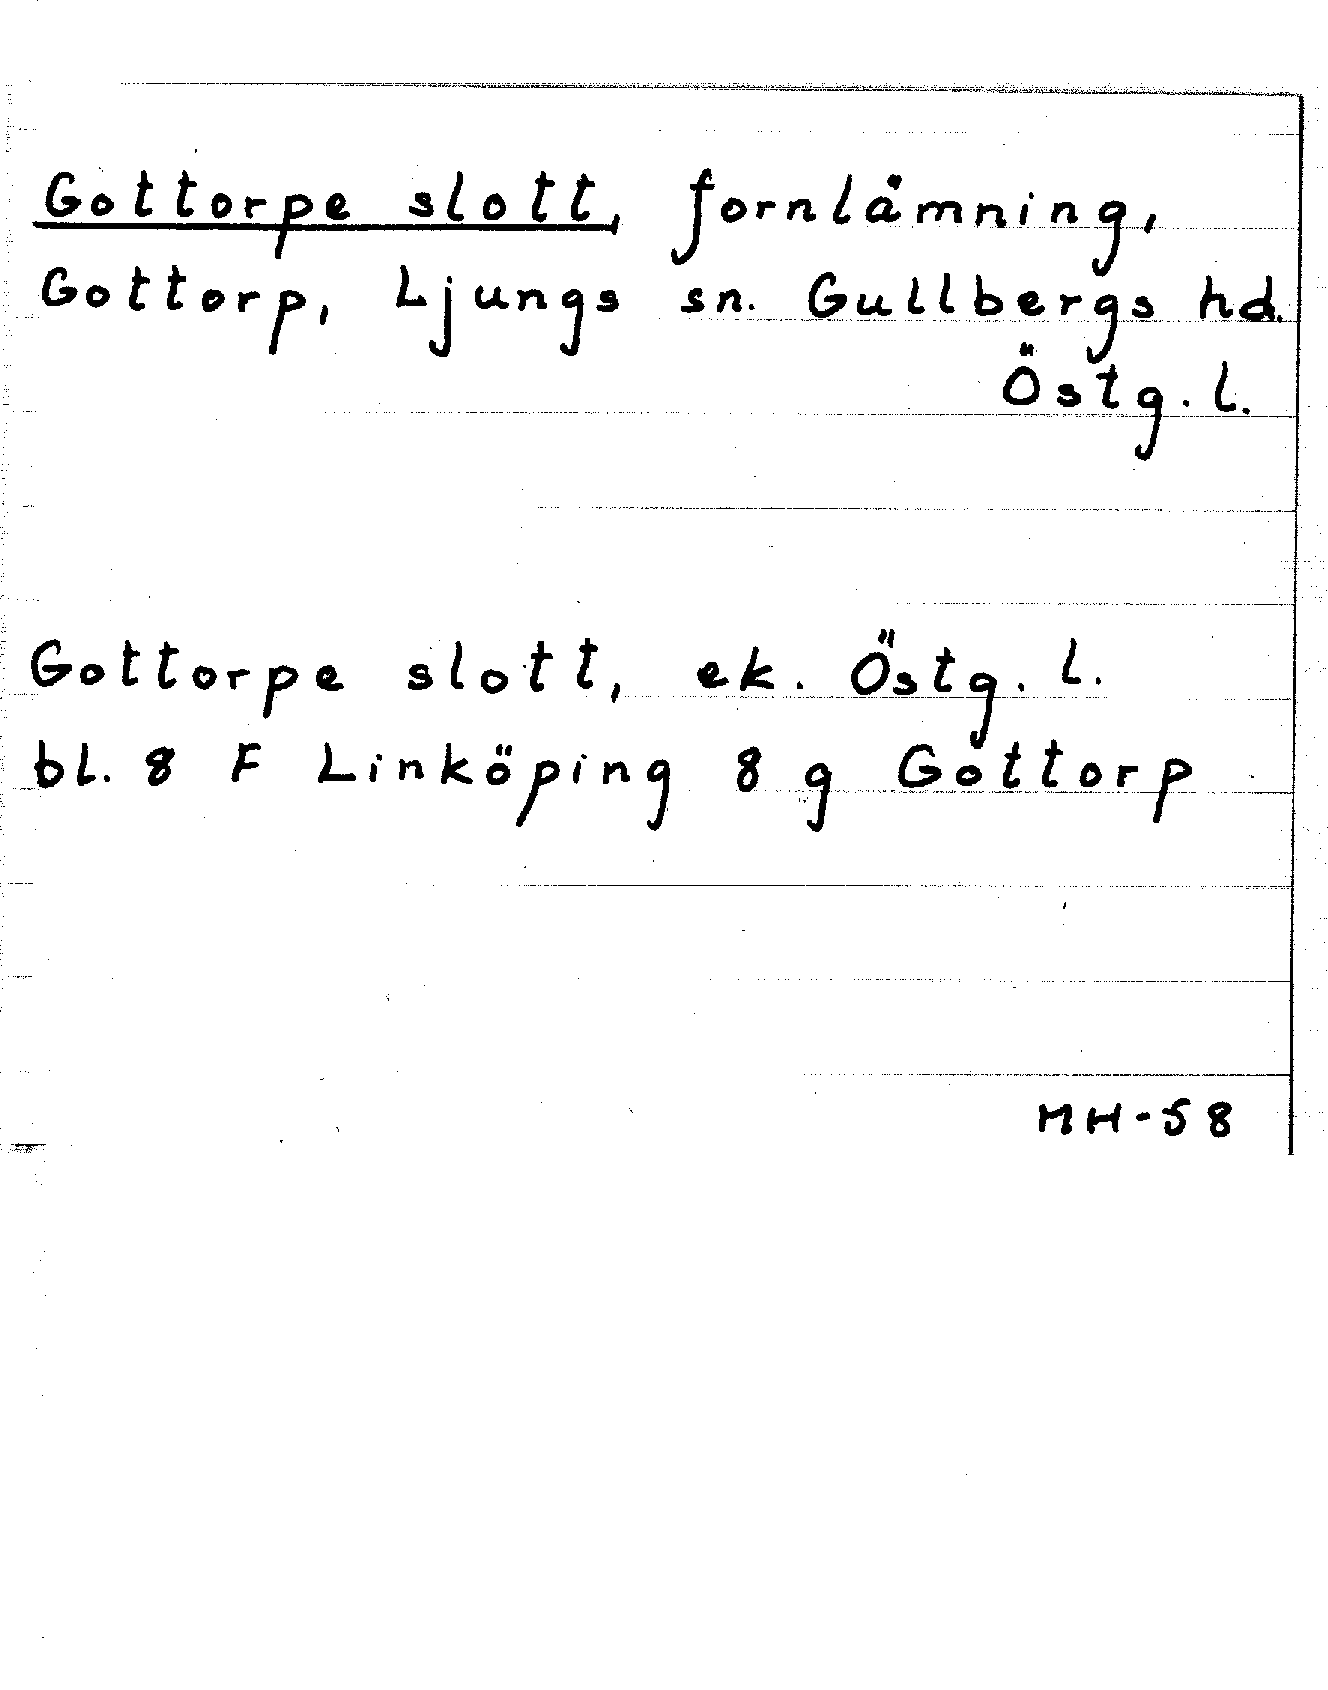 Gottorpe slott, fornlämning,
Gottorp, Ljungs sn. Gullbergs hd.
Östg. l.
Gottorpe slott, ek. Östg. l.
bl. 8 F Linköping 8 g Gottorp
MH-58